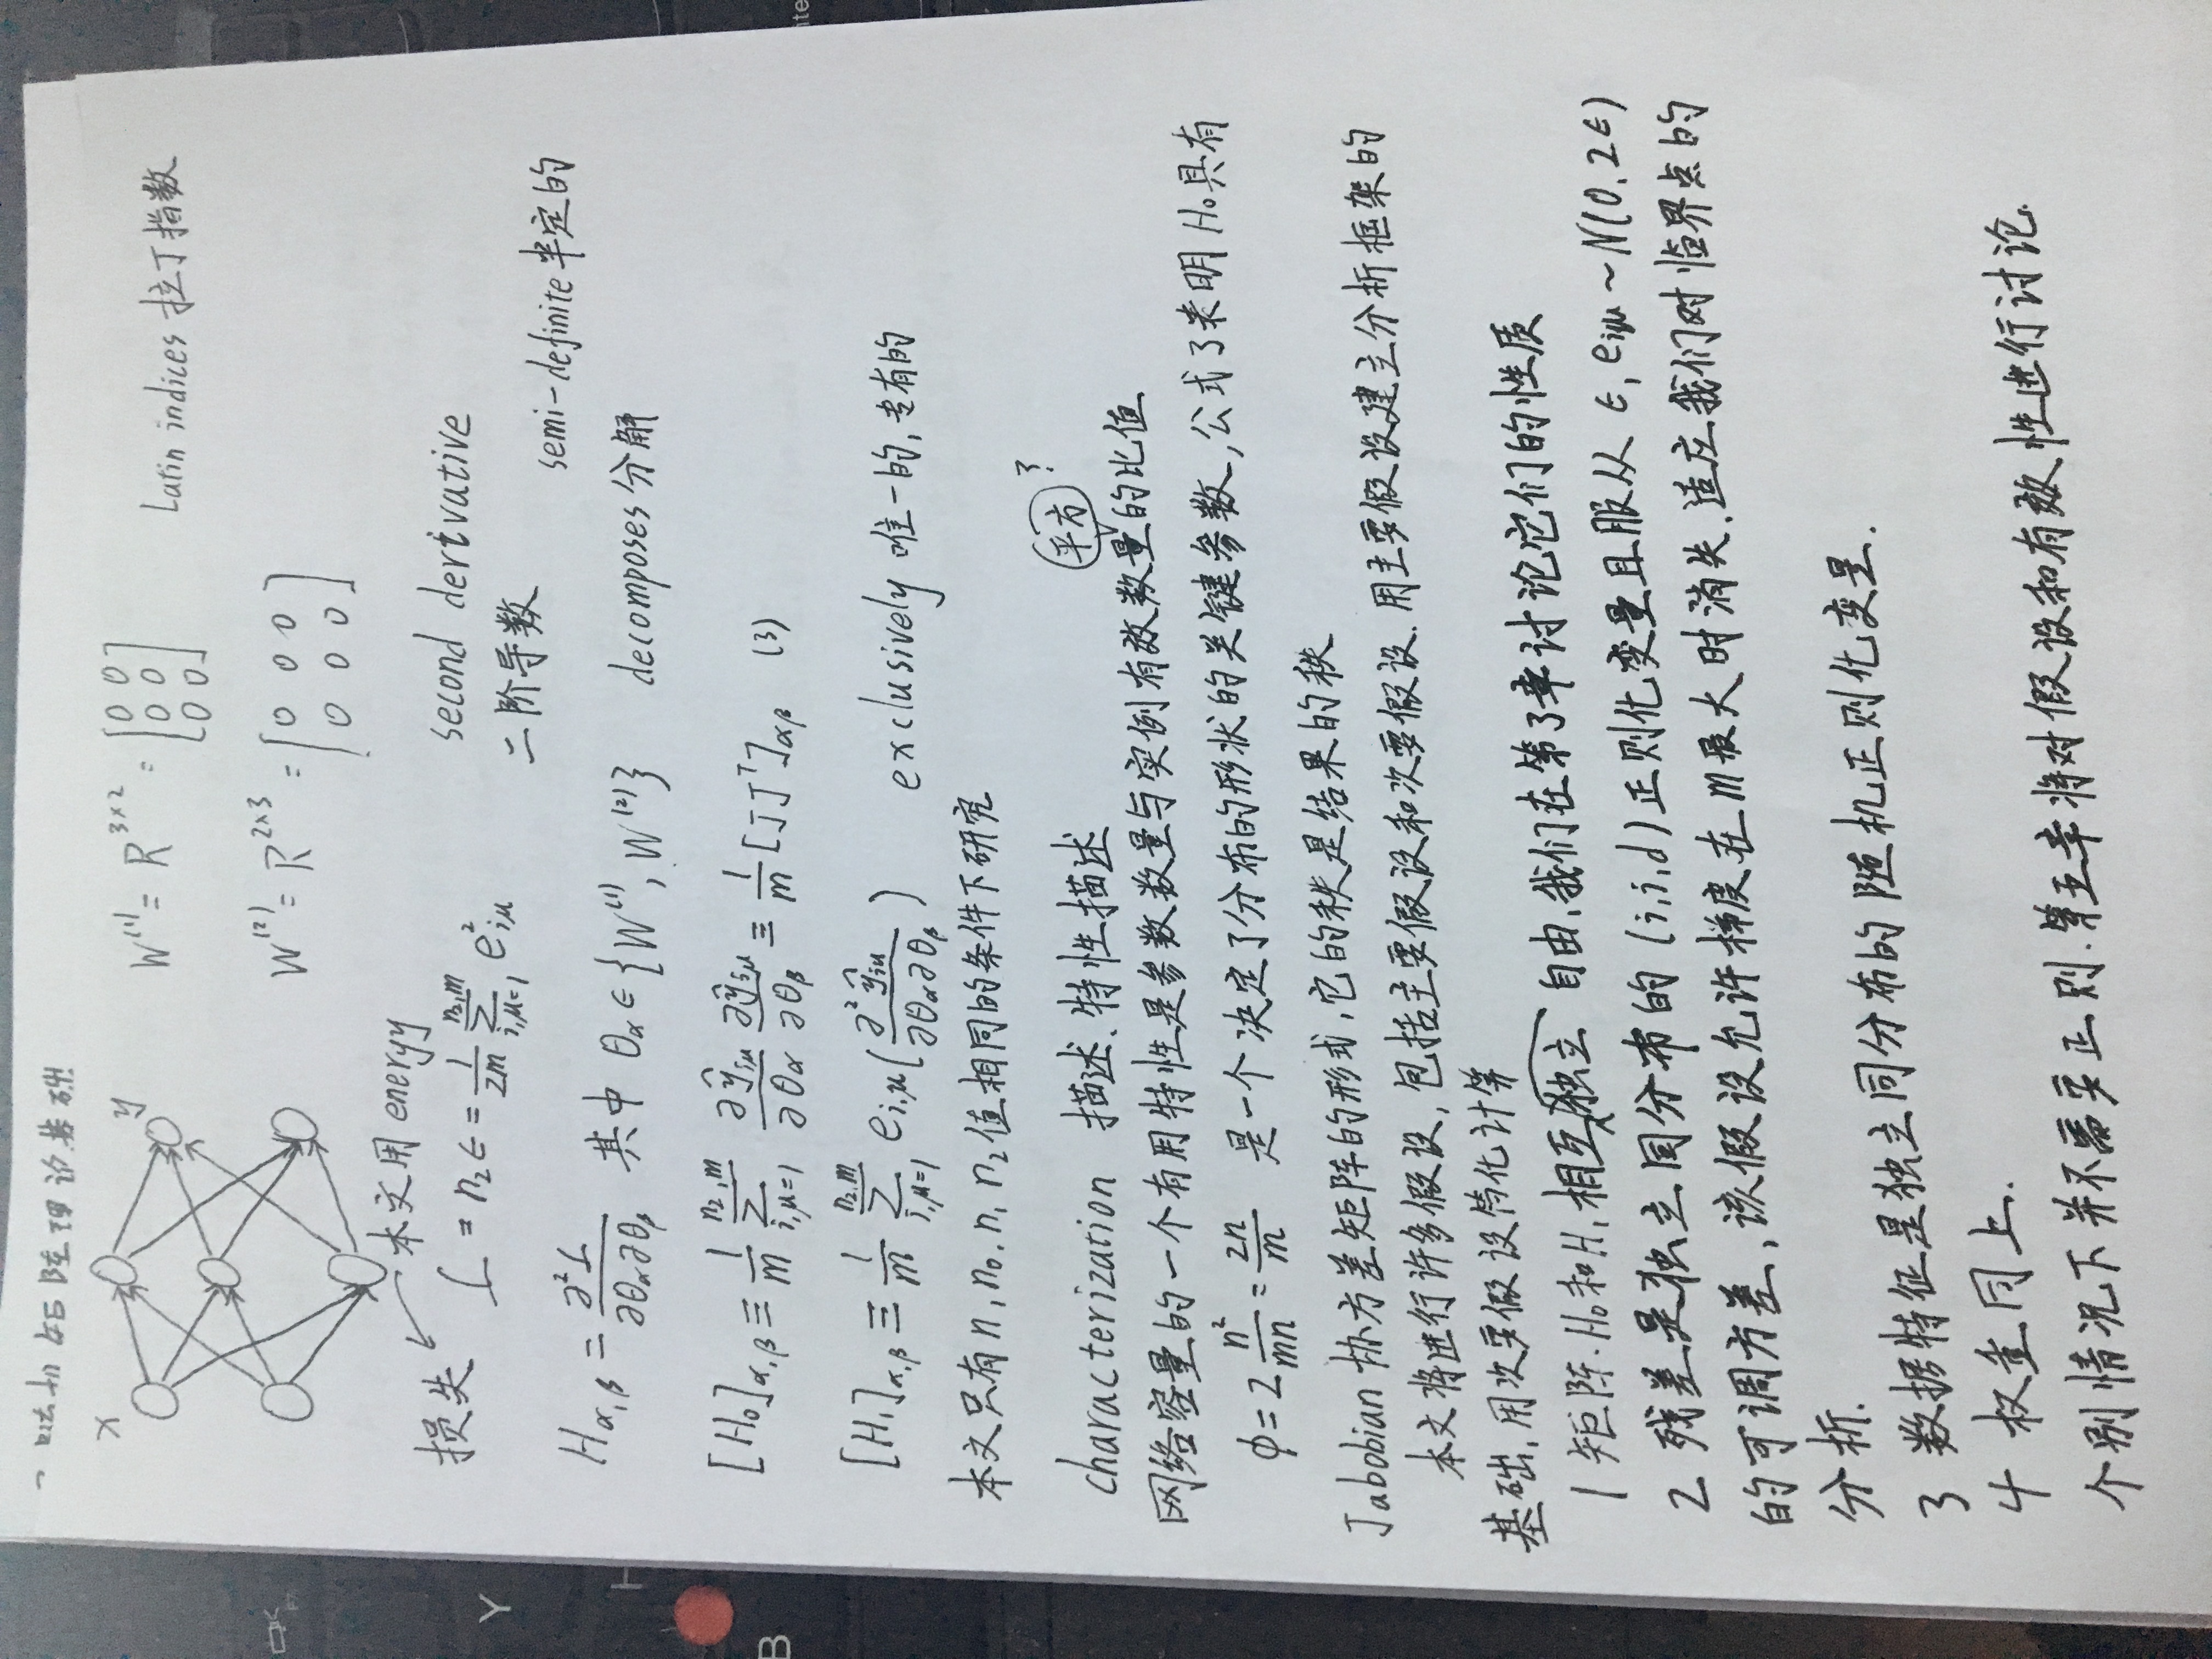 一 随机矩阵理论基础
x
y
W⁽¹⁾= R³ˣ² = [0 0
0 0
0 0]
Latin indices 拉丁指数
W⁽²⁾= R²ˣ³ = [0 0 0
0 0 0]
本文用 eneryy
损失 L = n₂ϵ = 1/2m Σ_{i,μ=1}^{n₂,m} e²_{iμ}
second derivative
二阶导数
semi-definite 半定的
H_{α,β} = ∂²L/∂θ_α∂θ_β 其中 θ_α ∈ {W⁽¹⁾, W⁽²⁾}
decomposes 分解
[H₀]_{α,β} ≡ 1/m Σ_{i,μ=1}^{n₂,m} ∂ŷ_{iμ}/∂θ_α ∂ŷ_{iμ}/∂θ_β ≡ 1/m [JJᵀ]_{αβ} (3)
[H₁]_{α,β} ≡ 1/m Σ_{i,μ=1}^{n₂,m} e_{i,μ}(∂²ŷ_{iμ}/∂θ_α∂θ_β)
exclusively 唯一的,专有的
本文只有 n, n₀, n₁ n₂ 值相同的条件下研究
characterization 描述、特性描述
平方 ?
网络容量的一个有用特性是参数数量与实例有效数量的比值
ϕ = 2 n²/mn = 2n/m 是一个决定了分布的形状的关键参数,公式3表明 H₀具有
Jabobian 协方差矩阵的形式,它的秩是结果的秩
本文将进行许多假设,包括主要假设和次要假设.用主要假设建立分析框架的
基础,用次要假设简化计算
1 矩阵.H₀和H₁相互独立 自由,我们在第3章讨论它们的性质
2 残差是独立同分布的 (i,i,d)正则化变量且服从 ϵ, e_{iμ} ~ N(0,2ϵ)
的可调方差,该假设允许梯度在m最大时消失.适应我们对临界点的
分析.
3 数据特征是独立同分布的随机正则化变量.
4 权重同上.
个别情况下并不需要正则.第五章将对假设和有效性进行讨论.
Y
H
B
F7